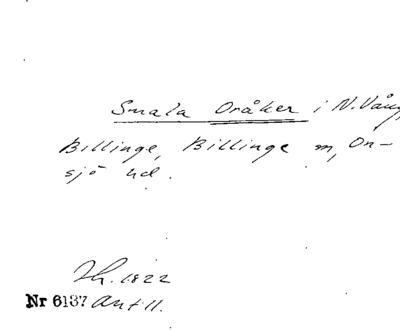 Smala Oråker i N. Vång
Billinge, Billinge m, On-
sjö hd.
Zh. 1822
Nr 6137 Ant 11.